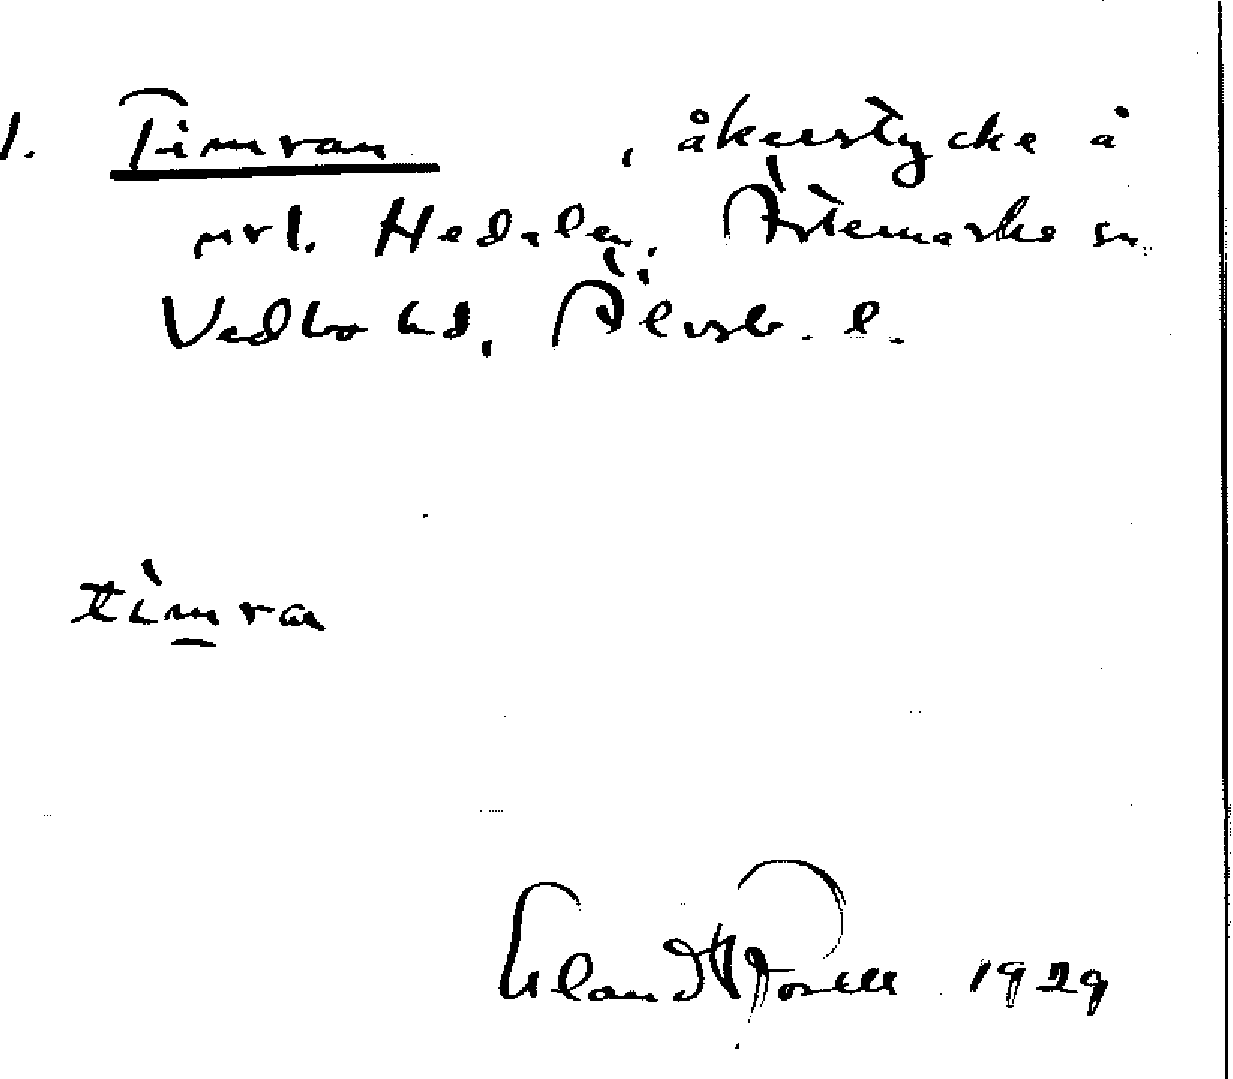 1. Timran , åkerstycke å
nr 1. Hedalen, Ärtemarks sn
Vedbo hd, Älvsb. l.
timra
Erland Rosell 1929